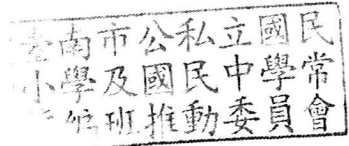 臺南市公私立國民
小學及國民中學常
編班推動委員會